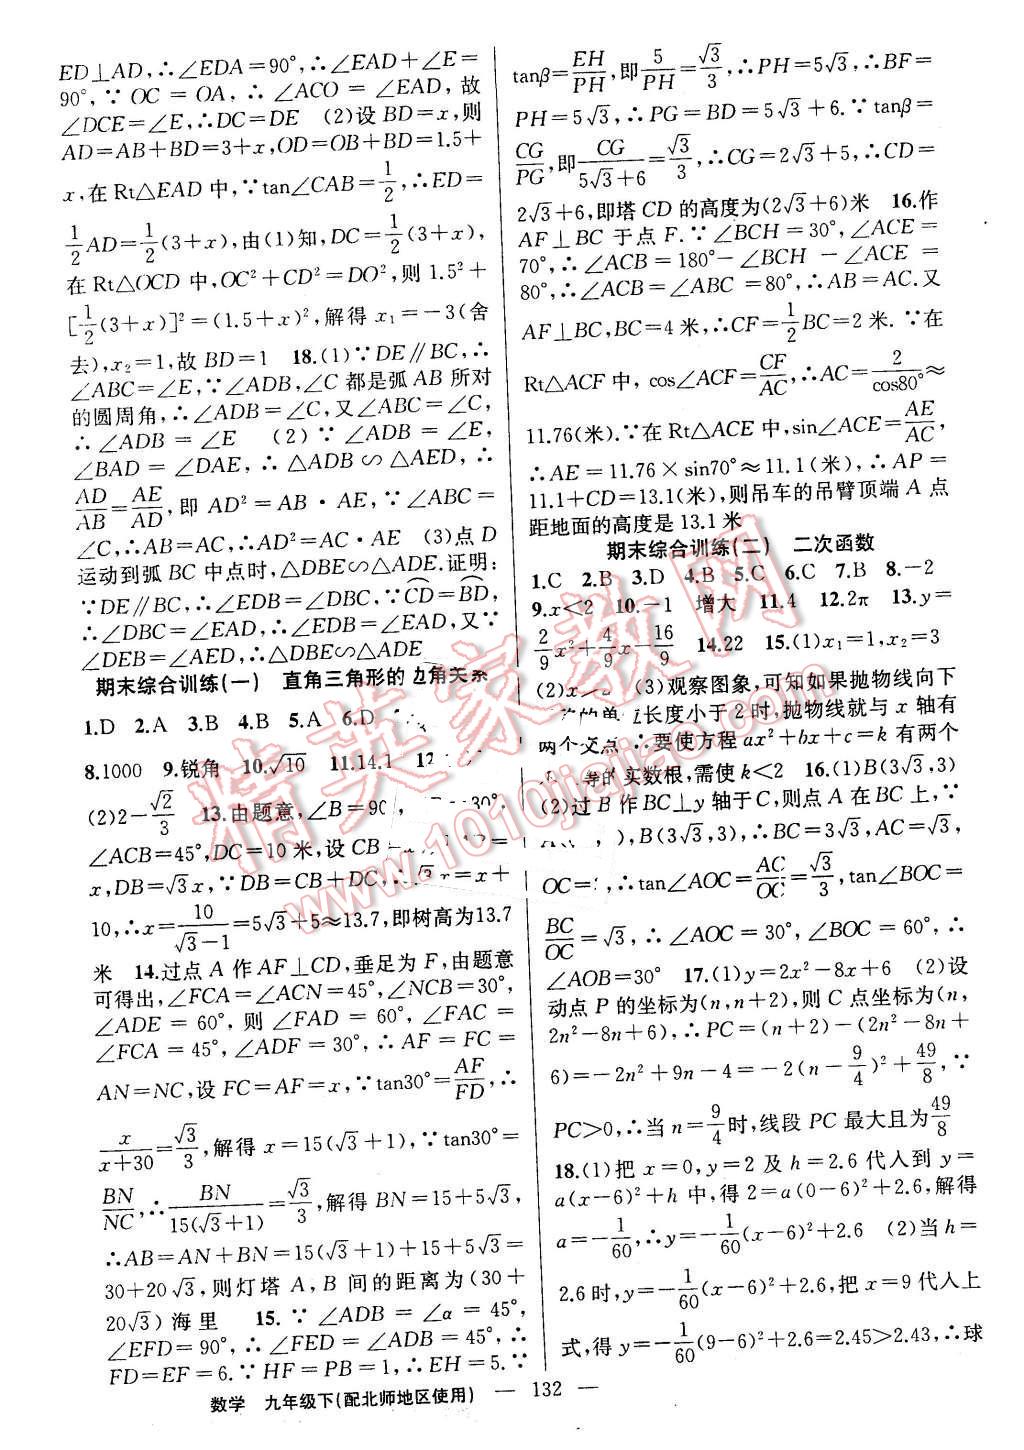 ED⊥AD,∴∠EDA=90°,∴∠EAD+∠E=
90°,∵OC=OA,∴∠ACO=∠EAD,故
∠DCE=∠E,∴DC=DE (2)设BD=x,则
AD=AB+BD=3+x,OD=OB+BD=1.5+
x,在Rt△EAD中,∵tan∠CAB=1/2,∴ED=
1/2AD=1/2(3+x),由(1)知,DC=1/2(3+x),
在Rt△OCD中,OC²+CD²=DO²,则1.5²+
[1/2(3+x)]²=(1.5+x)²,解得x₁=-3(舍
去),x₂=1,故BD=1 18.(1)∵DE∥BC,∴
∠ABC=∠E,∵∠ADB,∠C都是弧AB所对
的圆周角,∴∠ADB=∠C,又∠ABC=∠C,
∴∠ADB=∠E (2)∵∠ADB=∠E,
∠BAD=∠DAE,∴△ADB∽△AED,∴
AD/AB=AE/AD,即AD²=AB·AE,∵∠ABC=
∠C,∴AB=AC,∴AD²=AC·AE (3)点D
运动到弧BC中点时,△DBE∽△ADE.证明:
∵DE∥BC,∴∠EDB=∠DBC,∵CD=BD,
∴∠DBC=∠EAD,∴∠EDB=∠EAD,又∵
∠DEB=∠AED,∴△DBE∽△ADE
期末综合训练(一) 直角三角形的边角关系
1.D 2.A 3.B 4.B 5.A 6.D
8.1000 9.锐角 10.√10 11.14.1
(2)2-√2/3 13.由题意,∠B=90°, 30°,
∠ACB=45°,DC=10米,设CB
x,DB=√3x,∵DB=CB+DC,∴√3x=x+
10,∴x=10/(√3-1)=5√3+5≈13.7,即树高为13.7
米 14.过点A作AF⊥CD,垂足为F,由题意
可得出,∠FCA=∠ACN=45°,∠NCB=30°,
∠ADE=60°,则∠FAD=60°,∠FAC=
∠FCA=45°,∠ADF=30°,∴AF=FC=
AN=NC,设FC=AF=x,∵tan30°=AF/FD,∴
x/(x+30)=√3/3,解得x=15(√3+1),∵tan30°=
BN/NC,∴BN/(15(√3+1))=√3/3,解得BN=15+5√3,
∴AB=AN+BN=15(√3+1)+15+5√3=
30+20√3,则灯塔A,B间的距离为(30+
20√3)海里 15.∵∠ADB=∠α=45°,
∠EFD=90°,∴∠FED=∠ADB=45°,∴
FD=EF=6.∵HF=PB=1,∴EH=5.∵
tanβ=EH/PH,即5/PH=√3/3,∴PH=5√3,∴BF=
PH=5√3,∴PG=BD=5√3+6.∵tanβ=
CG/PG,即CG/(5√3+6)=√3/3,∴CG=2√3+5,∴CD=
2√3+6,即塔CD的高度为(2√3+6)米 16.作
AF⊥BC于点F.∵∠BCH=30°,∠ACE=
70°,∴∠ACB=180°-∠BCH-∠ACE=
80°,∴∠ACB=∠ABC=80°,∴AB=AC.又
AF⊥BC,BC=4米,∴CF=1/2BC=2米.∵在
Rt△ACF中,cos∠ACF=CF/AC,∴AC=2/cos80°≈
11.76(米).∵在Rt△ACE中,sin∠ACE=AE/AC,
∴AE=11.76×sin70°≈11.1(米),∴AP=
11.1+CD=13.1(米),则吊车的吊臂顶端A点
距地面的高度是13.1米
期末综合训练(二) 二次函数
1.C 2.B 3.D 4.B 5.C 6.C 7.B 8.-2
9.x<2 10.-1 增大 11.4 12.2π 13.y=
2/9x²+4/9x-16/9 14.22 15.(1)x₁=1,x₂=3
(2)x (3)观察图象,可知如果抛物线向下
的单位长度小于2时,抛物线就与x轴有
两个交点,∴要使方程ax²+bx+c=k有两个
等的实数根,需使k<2 16.(1)B(3√3,3)
(2)过B作BC⊥y轴于C,则点A在BC上,∵
),B(3√3,3),∴BC=3√3,AC=√3,
OC= ,∴tan∠AOC=AC/OC=√3/3,tan∠BOC=
BC/OC=√3,∴∠AOC=30°,∠BOC=60°,∴
∠AOB=30° 17.(1)y=2x²-8x+6 (2)设
动点P的坐标为(n,n+2),则C点坐标为(n,
2n²-8n+6),∴PC=(n+2)-(2n²-8n+
6)=-2n²+9n-4=-2(n-9/4)²+49/8,∵
PC>0,∴当n=9/4时,线段PC最大且为49/8
18.(1)把x=0,y=2及h=2.6代人到y=
a(x-6)²+h中,得2=a(0-6)²+2.6,解得
a=-1/60,∴y=-1/60(x-6)²+2.6 (2)当h=
2.6时,y=-1/60(x-6)²+2.6,把x=9代人上
式,得y=-1/60(9-6)²+2.6=2.45>2.43,∴球
数学 九年级下(配北师地区使用) — 132 —
精英家教网
www.1010jiajiao.com